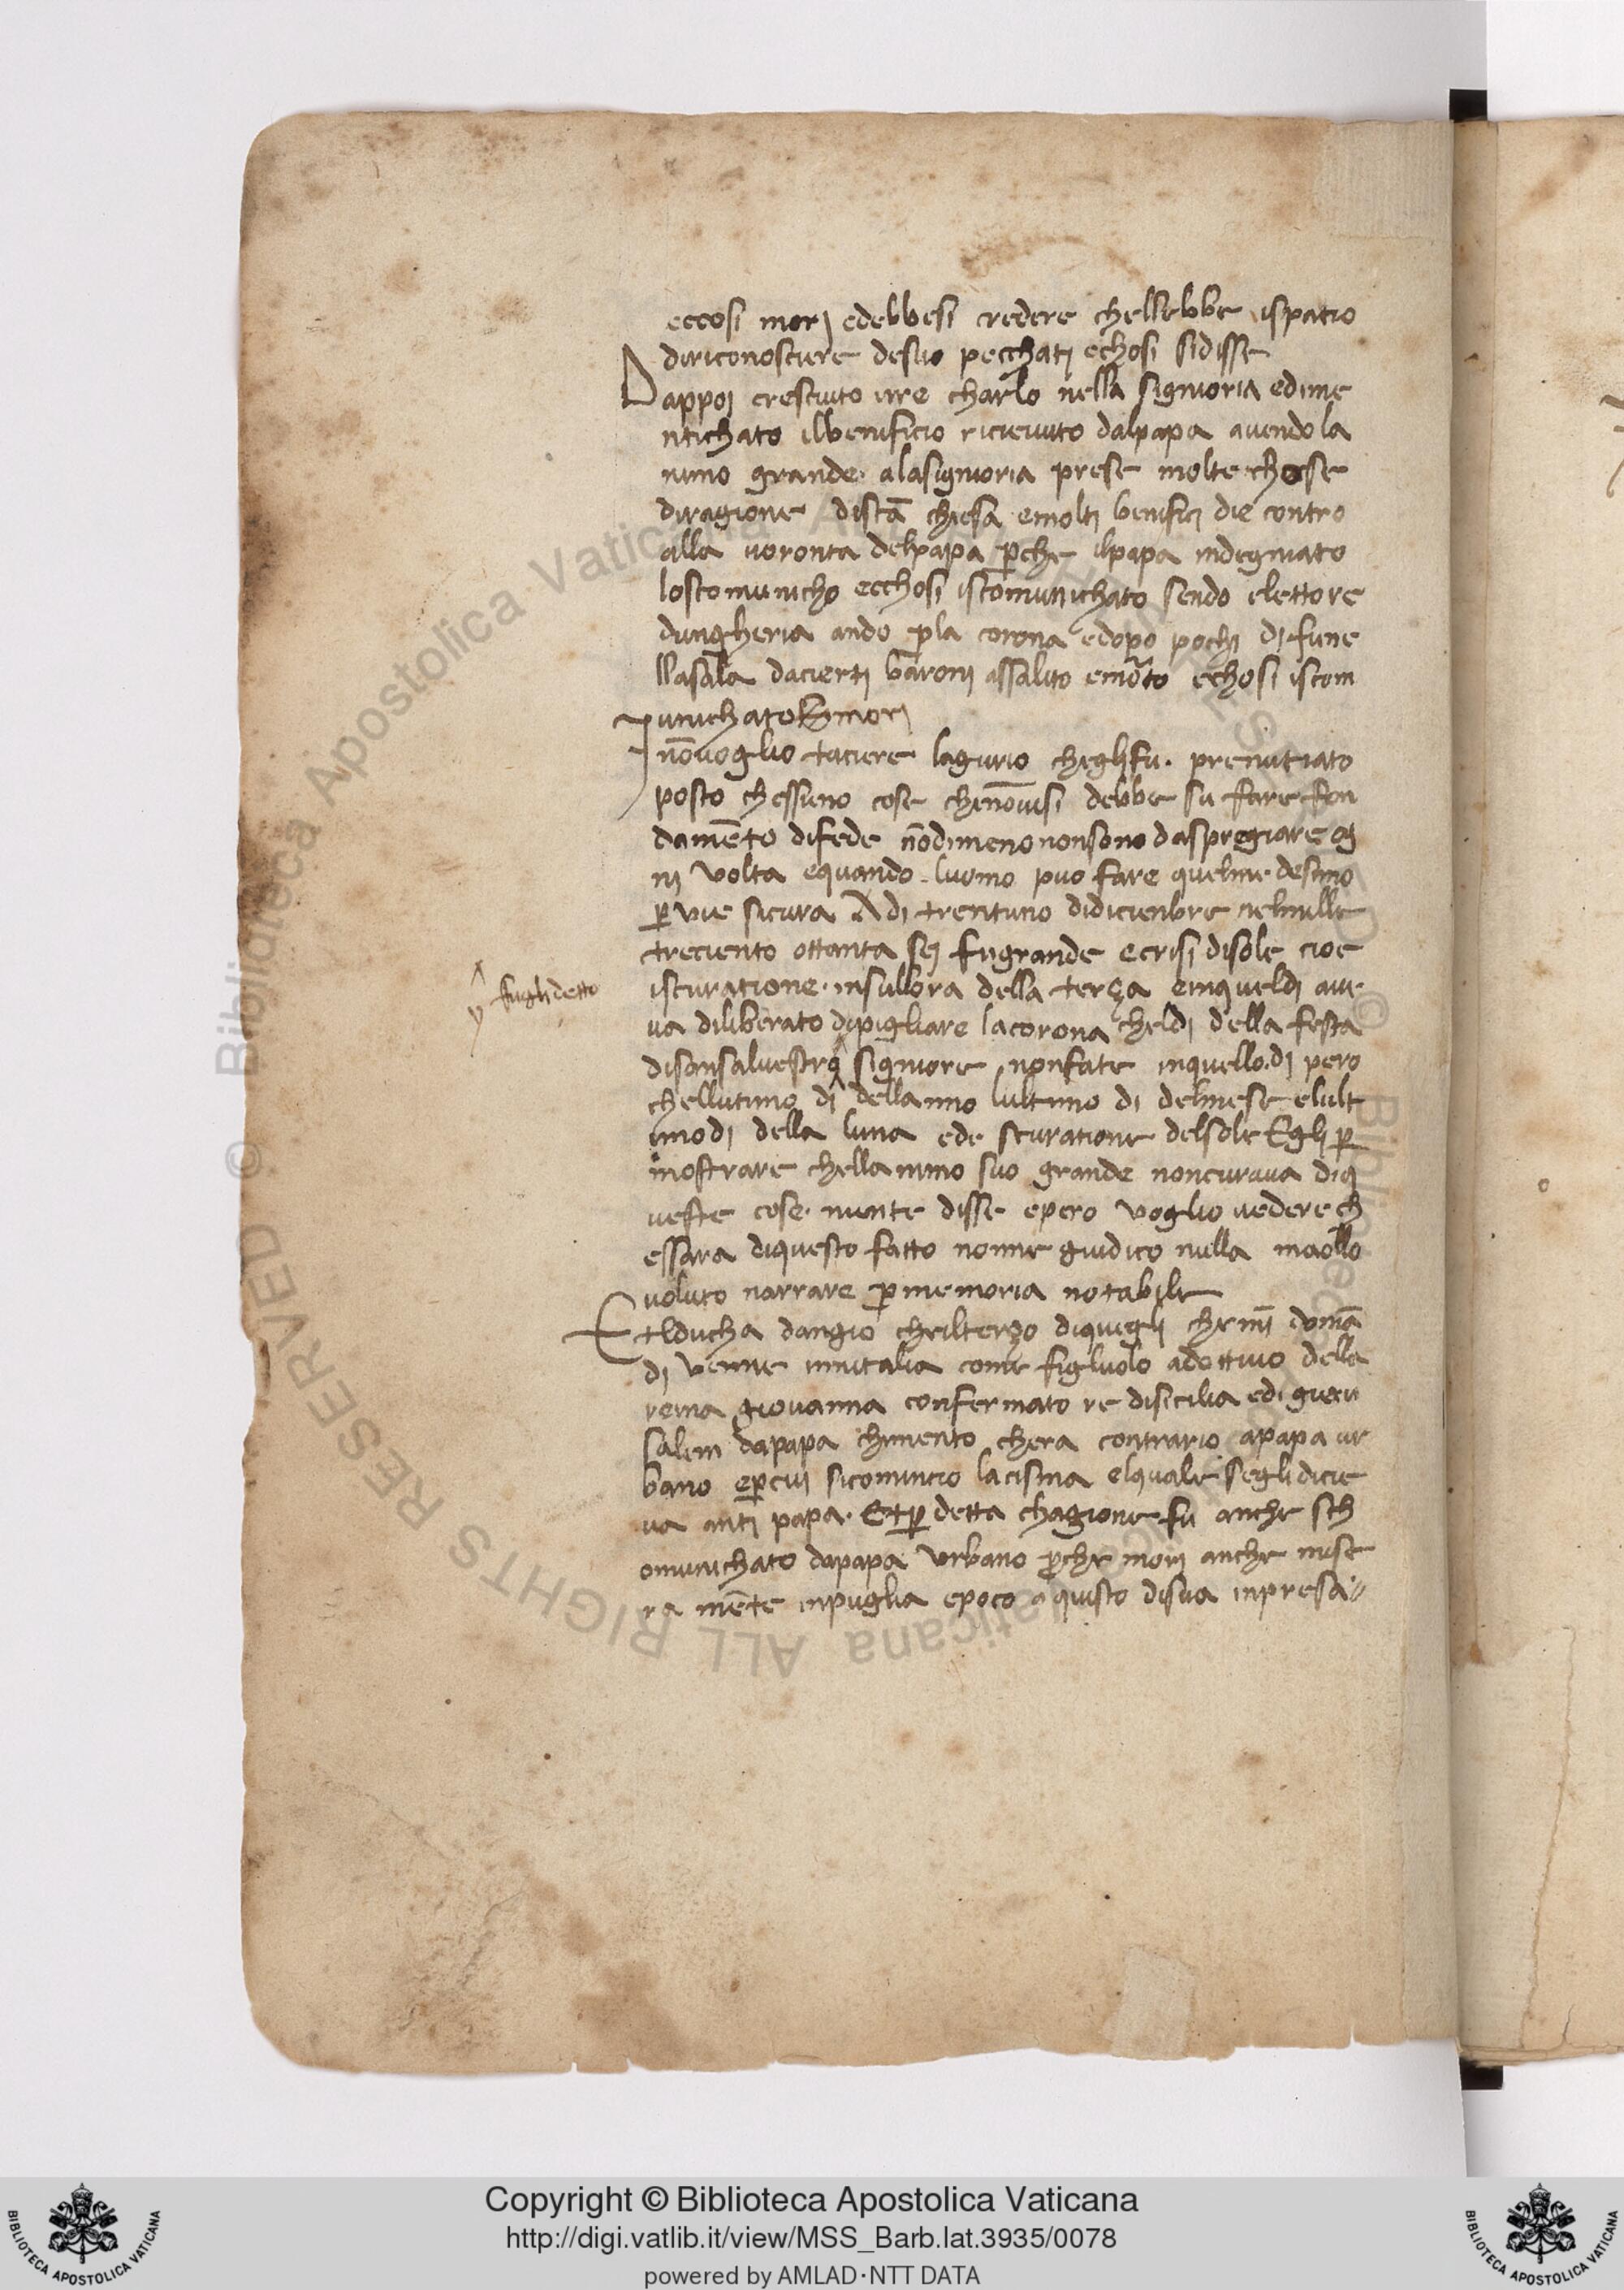 eccosi morj edebbesi credere chellebbe ispatio
diriconosciere desuo pecchatj echosi sidisse
Dappoj cresciuto irre charlo nella signioria edime
ntichato ilbenificio riceuuto dalpapa auendo la
nimo grande alasignioria prese molte chose
diragione discã chiesa emoltj benificj die contro
alla uoronta delpapa ꝑche ilpapa indegniato
loscomunicho ecchosi iscomunichato sendo elettore
dungheria ando ꝑla corona edopo pochi dj fune
llasala daciertj baronj assalito emorto echosi iscom
unichato morj
Jnõuoglio taciere lagurio cheglifu prenutiato
posto chessieno cose chenõuisi debbe su fare fon
damẽto difede nõdimeno nonsono daspregiare og
nj volta equando luomo puo fare quelme desimo
ꝑ vie sicura Adj trentuno didicienbre nelmille
treciento ottanta sej fugrande ecrisj disole cioe
iscuratione insullora della terça einqueldj aue
ua diliberato dipigliare lacorona cheldj della festa
disansaluestro signiore nonfate inquello dj pero
chellutimo dj dellanno lultimo di delmese elult
imo dj della luna ede scuratione delsole Egli ꝑ
mostrare chellanimo suo grande noncuraua diq
ueste cose niente disse epero voglio uedere ch
essara diquesto fatto nonne giudico nulla maollo
uoluto narrare ꝑ memoria notabile
Elducha dangio cheilterço diquegli che mĩ domã
dj venne innitalia come figliuolo adottiuo della
reina giouanna confermato re disicilia edi gieru
salem dapapa chimento chera contrario apapa ur
bano eꝑcui sicomincio lacisma elquale segli dicie
ua antj papa Etꝑ detta chagione fu anche sch
omunichato dapapa vrbano ꝑche morj anche mise
ra mẽte inpuglia epoco aquisto disua inpresa
fuglidetto
Copyright © Biblioteca Apostolica Vaticana
http://digi.vatlib.it/view/MSS_Barb.lat.3935/0078
powered by AMLAD·NTT DATA
BIBLIOTECA APOSTOLICA VATICANA
BIBLIOTECA APOSTOLICA VATICANA